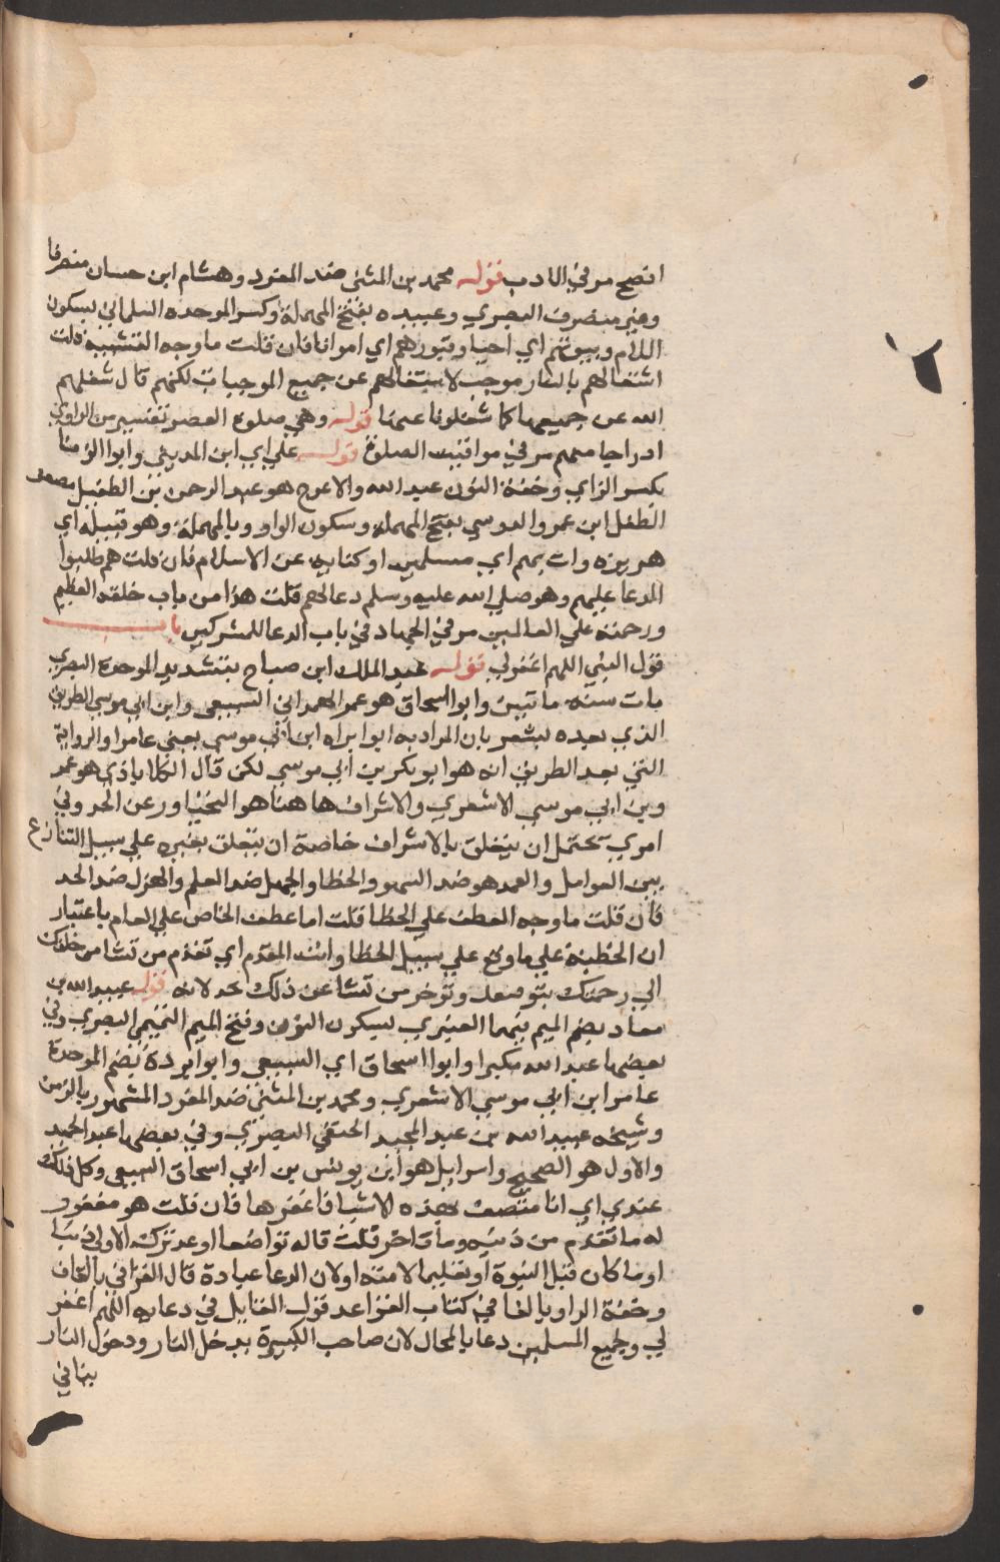 افصح مر في الادب قوله محمد بن المثنى ضد المفرد وهشام ابن حسان منصرفا
وغير منصرف البصري وعبيده بفتح المهملة وكسر الموحده السلماني بسكون
اللام وبيوتهم اي احيا وقبورهم اي امواتا فان قلت ما وجه التشبيه قلت
اشتغالهم بالنار موجب لاشتغالهم عن جميع الموجبات لكنهم قال شغلهم
الله عن جميعها كما شغلونا عنها قوله وهي صلوة العصر تفسير من الراوي
ادراجا منهم مر في مواقيت الصلوة قوله علي اي ابن المديني وابوا الزنا
بكسر الزاي وخفة النون عبد الله والاعرج هو عبد الرحمن بن الطفيل مصغر
الطفل ابن عمرو الدوسي بفتح المهملة وسكون الواو وبالمهملة وهو قبيلة اي
هريرة وات بهم اي مسلمين او كناية عن الاسلام فان قلت هم طلبوا
الدعا عليهم وهو صلي الله عليه وسلم دعا لهم قلت هذا من باب خلقه العظيم
ورحمته علي العالمين مر في الجهاد في باب الدعا للمشركين باب
قول النبي اللهم اغفر لي قوله عبد الملك ابن صباح بتشديد الموحدة البصري
مات سنة ماتيين وابو اسحاق هو عمر الهمداني السبيعي وابن ابي موسي الطريق
الذي بعده يشعر بان المراد به ابو ابراه ابن ابي موسي يعني عامرا والرواية
التي بعد الطريق انه هو ابو بكر بن ابي موسي لكن قال الكلاباذي هو عمر
وبن ابي موسي الاشعري والاشراف ها هنا هو التجاور عن الحد وفي
امري يحتمل ان يتعلق بالاشراف خاصة ان يتعلق بغيره علي سبيل التنازع
بين العوامل والعمد هو ضد السهو والخطا والجهل ضد العلم والهزل ضد الجد
فان قلت ما وجه العطف علي الخطا قلت اما عطف الخاص علي العام باعتبار
ان الخطيئة علي ما وقع علي سبيل الخطا وانت المقدم اي تقدم من تشا من خلقك
الي رحمتك بتوفيقك وتوخر من تشا عن ذلك لخذلانه قوله عبيد الله بن
معاد بضم الميم بينهما العنبري بسكون النون وفتح الميم التميمي البصري وفي
بعضها عبد الله مكبرا وابوا اسحاق اي السبيعي وابوا بردة بضم الموحدة
عامر ابن ابي موسي الاشعري ومحمد بن المثني ضد المفرد المشهور بالزمن
وشيخه عبيد الله بن عبد المجيد الحنفي البصري وفي بعضها عبد الحميد
والاول هو الصحيح واسرايل هو ابن يونس بن ابي اسحاق السبيعي وكل ذلك
عندي اي انا متصف بهذه الاشيا فاغفرها فان قلت هو مغفور
له ما تقدم من ذنبه وما تاخر قلت قاله تواضعا او عد ترك الاولي ذنبا
او ما كان قبل النبوة او تعليما لامته او لان الدعا عبادة قال القرافي بالقاف
وخفة الرا وبالفا في كتاب القواعد قول القايل في دعايه اللهم اغفر
لي ولجميع المسلمين دعا بالمحال لان صاحب الكبيرة يدخل النار ودخول النار
ينافي